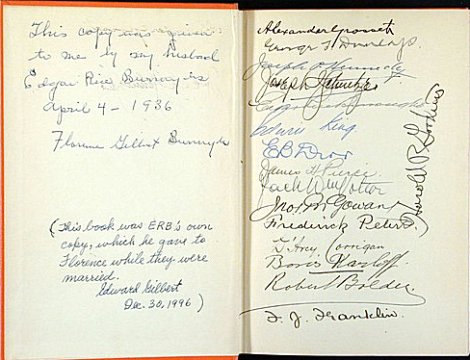 This copy was given
to me by my husbad
Edgar Rice Burroughs
April 4 - 1936
Florence Gilbert Burroughs
(This book was ERB's own
copy, which he gave to
Florence while they were
married.
Edward Gilbert
Dec. 30, 1996)
Alexander Grosset
George T Dunlap
Joseph
Joseph
Edwin King
James H Pierce
Jno. McGowan
Frederick Peters
D'Arcy Corrigan
Boris Karloff
Robert Bolder
F. J. Franklin
Harold R.